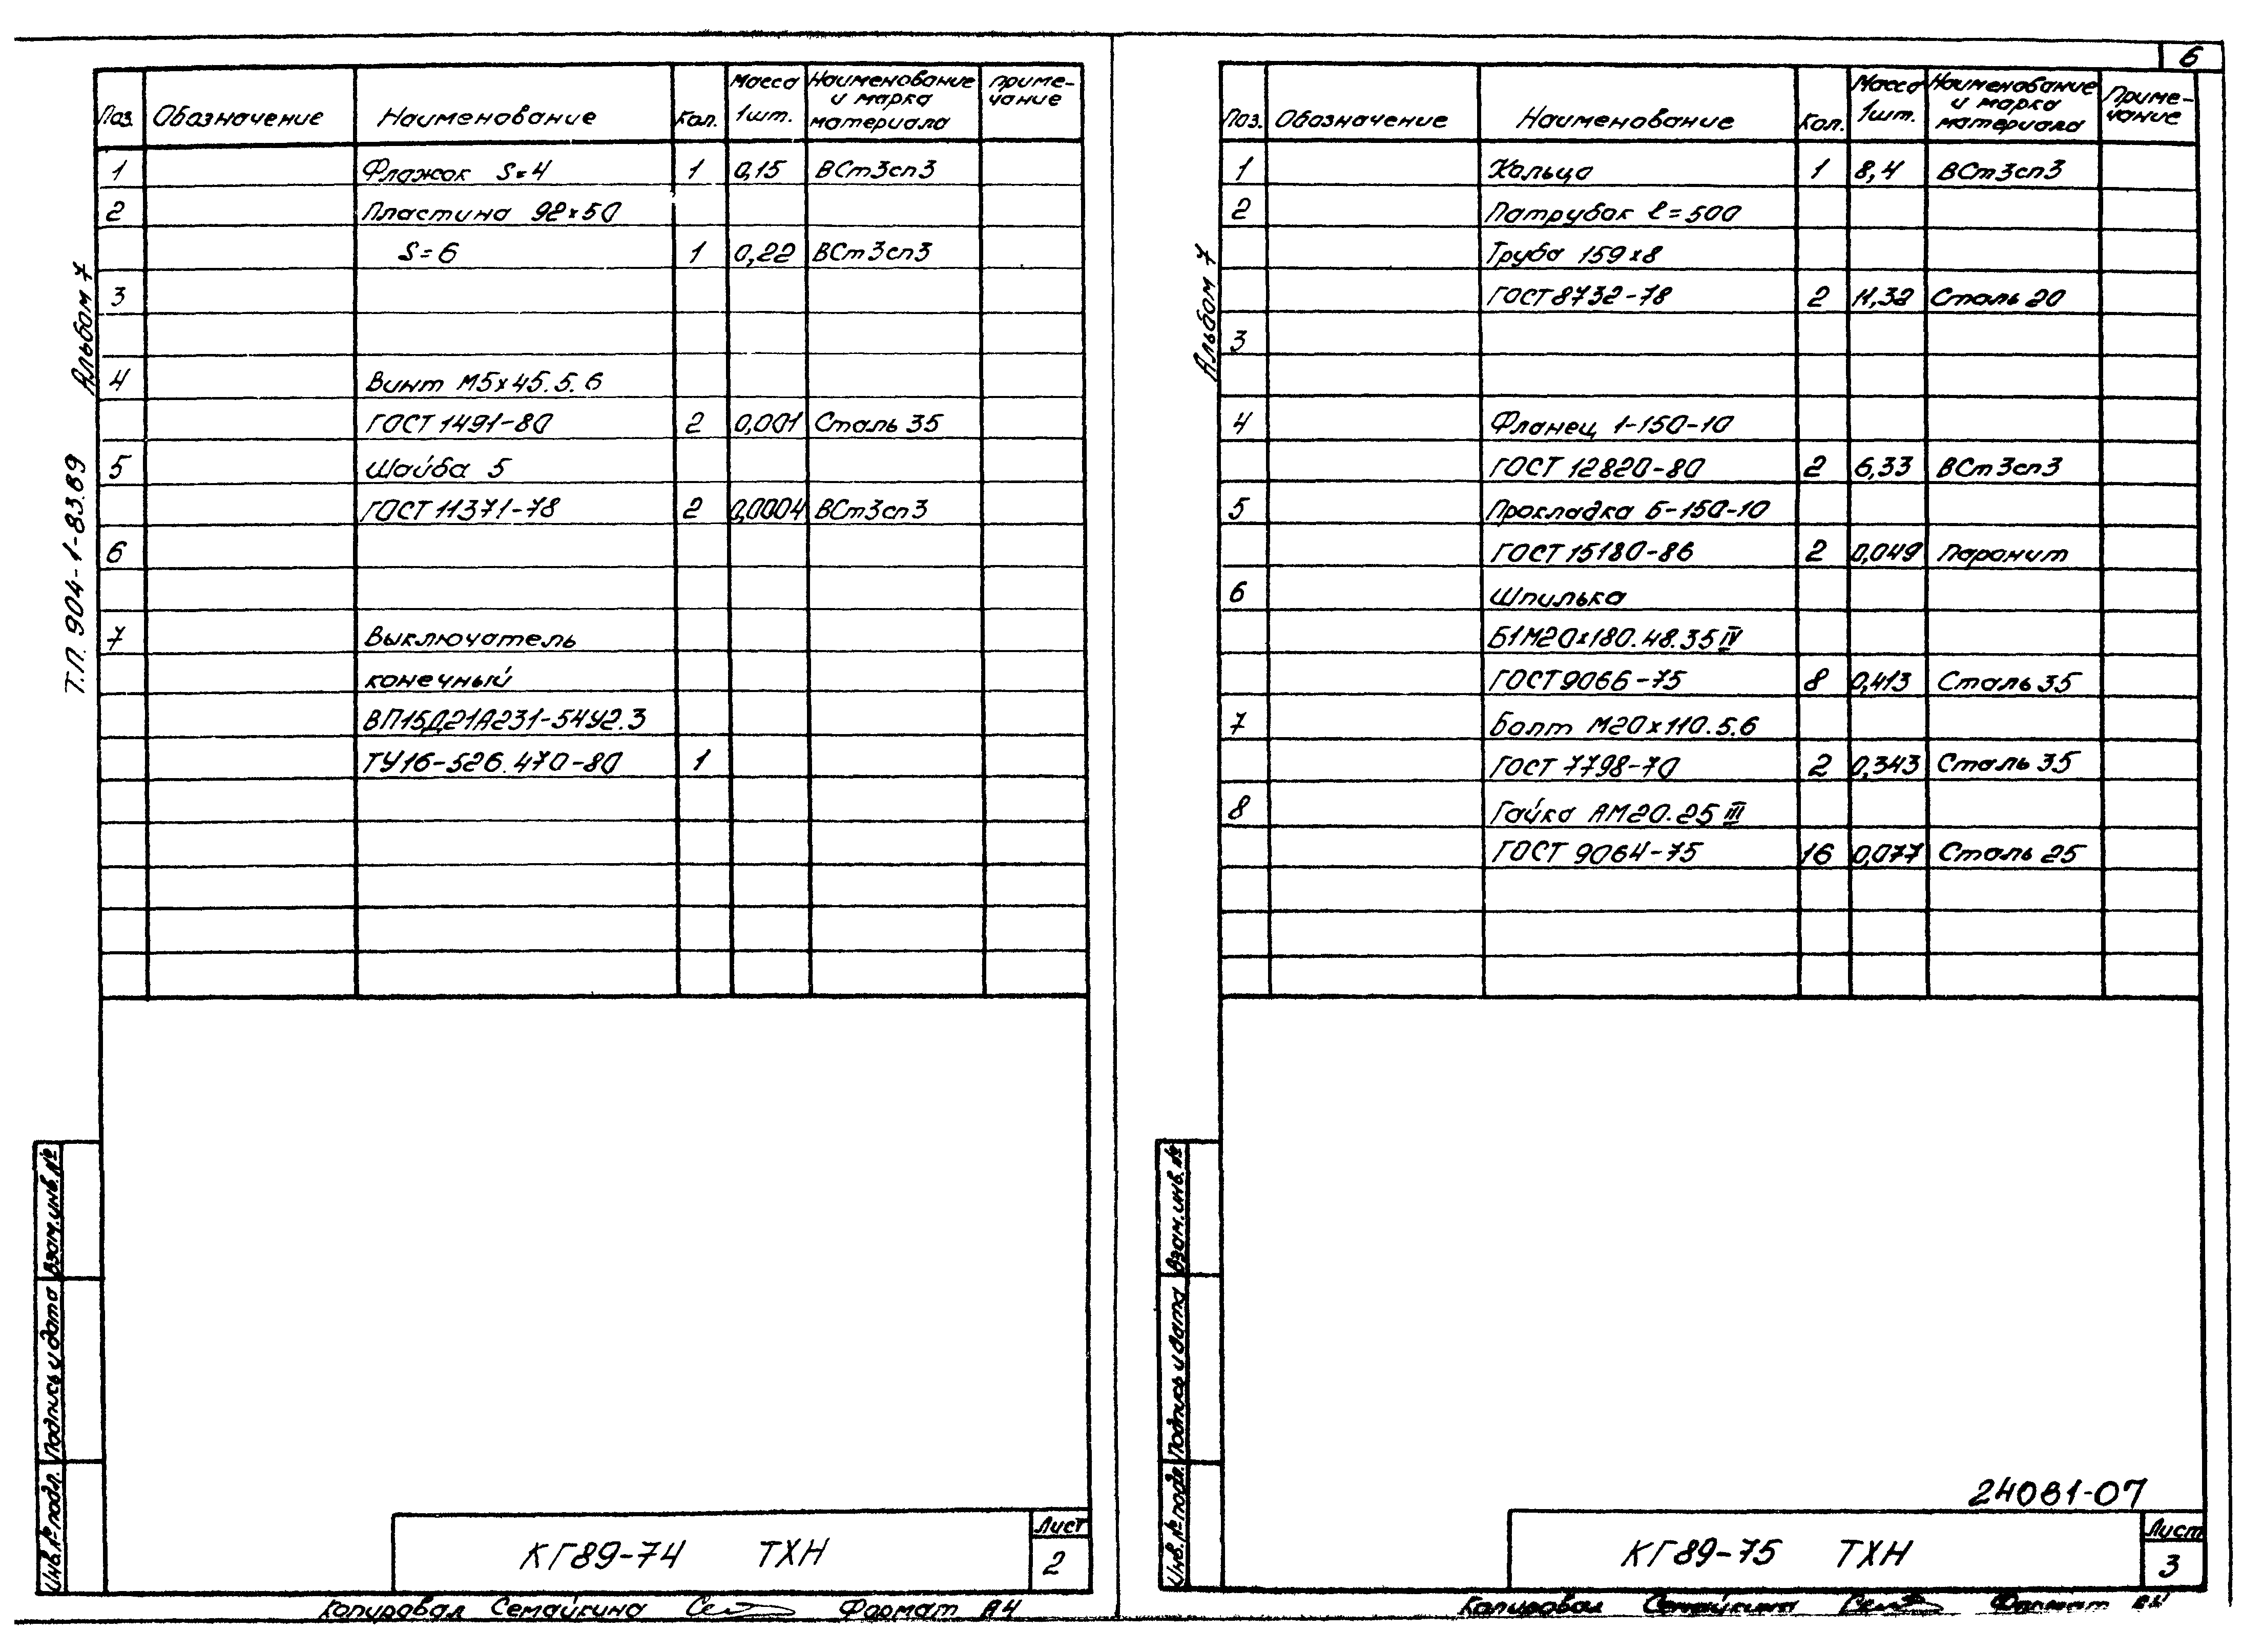 6
Альбом 7
Т.П. 904-1-83.89
Поз. Обозначение Наименование Кол. Масса 1шт. Наименование и марка материала Приме-чание
1 Флажок S=4 1 0,15 ВСт3сп3
2 Пластина 92×50
S=6 1 0,22 ВСт3сп3
3
4 Винт М5×45.5.6
ГОСТ 1491-80 2 0,001 Сталь 35
5 Шайба 5
ГОСТ 11371-78 2 0,0004 ВСт3сп3
6
7 Выключатель
конечный
ВП15Д21А231-54У2.3
ТУ16-526.470-80 1
Взам.инв.№
Подпись и дата
Инв.№ подл.
КГ89-74 ТХН
Лист
2
Копировал Семайкина Формат А4
Альбом 7
Поз. Обозначение Наименование Кол. Масса 1шт. Наименование и марка материала Приме-чание
1 Кольцо 1 8,4 ВСт3сп3
2 Патрубок ℓ=500
Труба 159×8
ГОСТ 8732-78 2 11,32 Сталь 20
3
4 Фланец 1-150-10
ГОСТ 12820-80 2 6,33 ВСт3сп3
5 Прокладка Б-150-10
ГОСТ 15180-86 2 0,049 Паронит
6 Шпилька
Б1М20×180.48.35 IV
ГОСТ 9066-75 8 0,413 Сталь 35
7 Болт М20×110.5.6
ГОСТ 7798-70 2 0,343 Сталь 35
8 Гайка АМ20.25 III
ГОСТ 9064-75 16 0,077 Сталь 25
Взам.инв.№
Подпись и дата
Инв.№ подл.
24081-07
КГ89-75 ТХН
Лист
3
Копировал Семайкина Формат